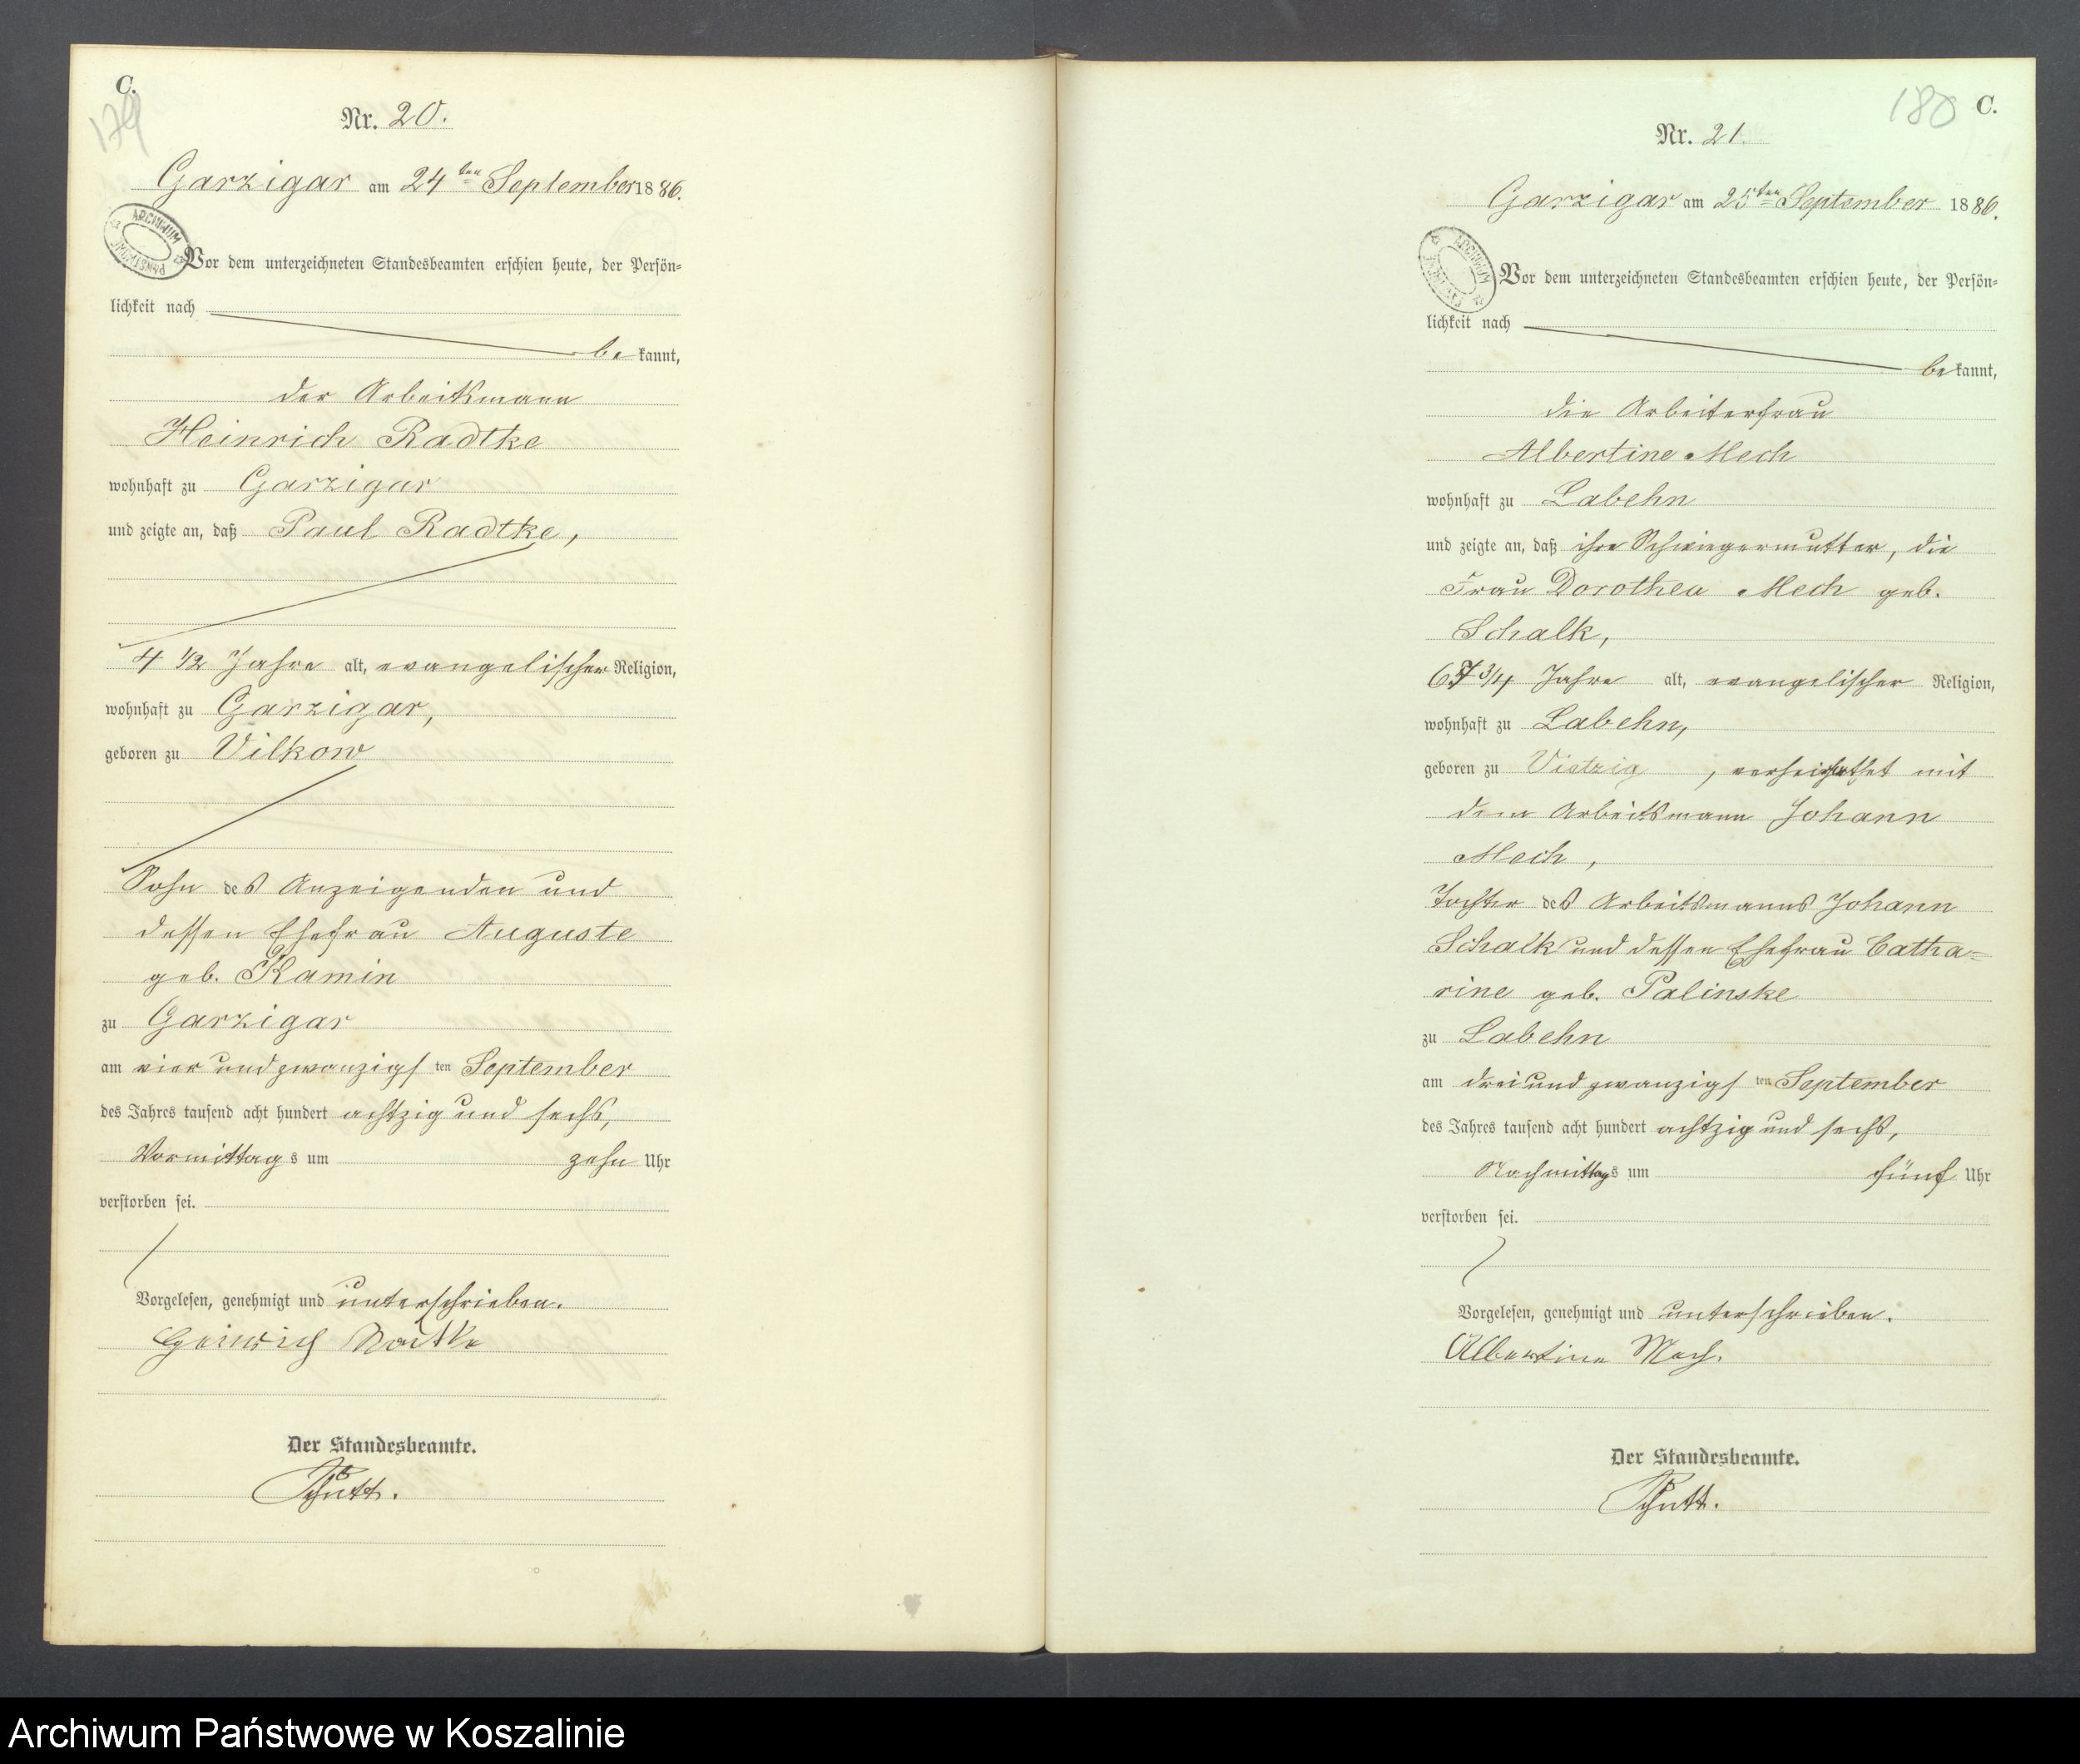 C.
179
Nr. 20.
Garzigar am 24ten September 1886.
ARCHIWUM PAŃSTWOWE
Vor dem unterzeichneten Standesbeamten erschien heute, der Persön-
lichkeit nach
be kannt,
der Arbeitsmann
Heinrich Radtke
wohnhaft zu Garzigar
und zeigte an, daß Paul Radtke,
4 1/2 Jahre alt, evangelischer Religion,
wohnhaft zu Garzigar,
geboren zu Vilkow
Sohn des Anzeigenden und
dessen Ehefrau Auguste
geb. Kamin
zu Garzigar
am vier und zwanzigsten September
des Jahres tausend acht hundert achtzig und sechs,
Vormittags um zehn Uhr
verstorben sei.
Vorgelesen, genehmigt und unterschrieben.
Heinrich Radtke
Der Standesbeamte.
180 C.
Nr. 21.
Garzigar am 25ten September 1886.
ARCHIWUM
Vor dem unterzeichneten Standesbeamten erschien heute, der Persön-
lichkeit nach
be kannt,
die Arbeiterfrau
Albertine Mech
wohnhaft zu Labehn
und zeigte an, daß ihre Schwiegermutter, die
Frau Dorothea Mech geb.
Schalk,
67 3/4 Jahre alt, evangelischer Religion,
wohnhaft zu Labehn,
geboren zu Vietzig, verheirathet mit
dem Arbeitsmann Johann
Mech,
Tochter des Arbeitsmanns Johann
Schalk und dessen Ehefrau Catha-
rine geb. Palinske
zu Labehn
am drei und zwanzigsten September
des Jahres tausend acht hundert achtzig und sechs,
Nachmittags um fünf Uhr
verstorben sei.
Vorgelesen, genehmigt und unterschrieben.
Albertine Mech.
Der Standesbeamte.
Archiwum Państwowe w Koszalinie